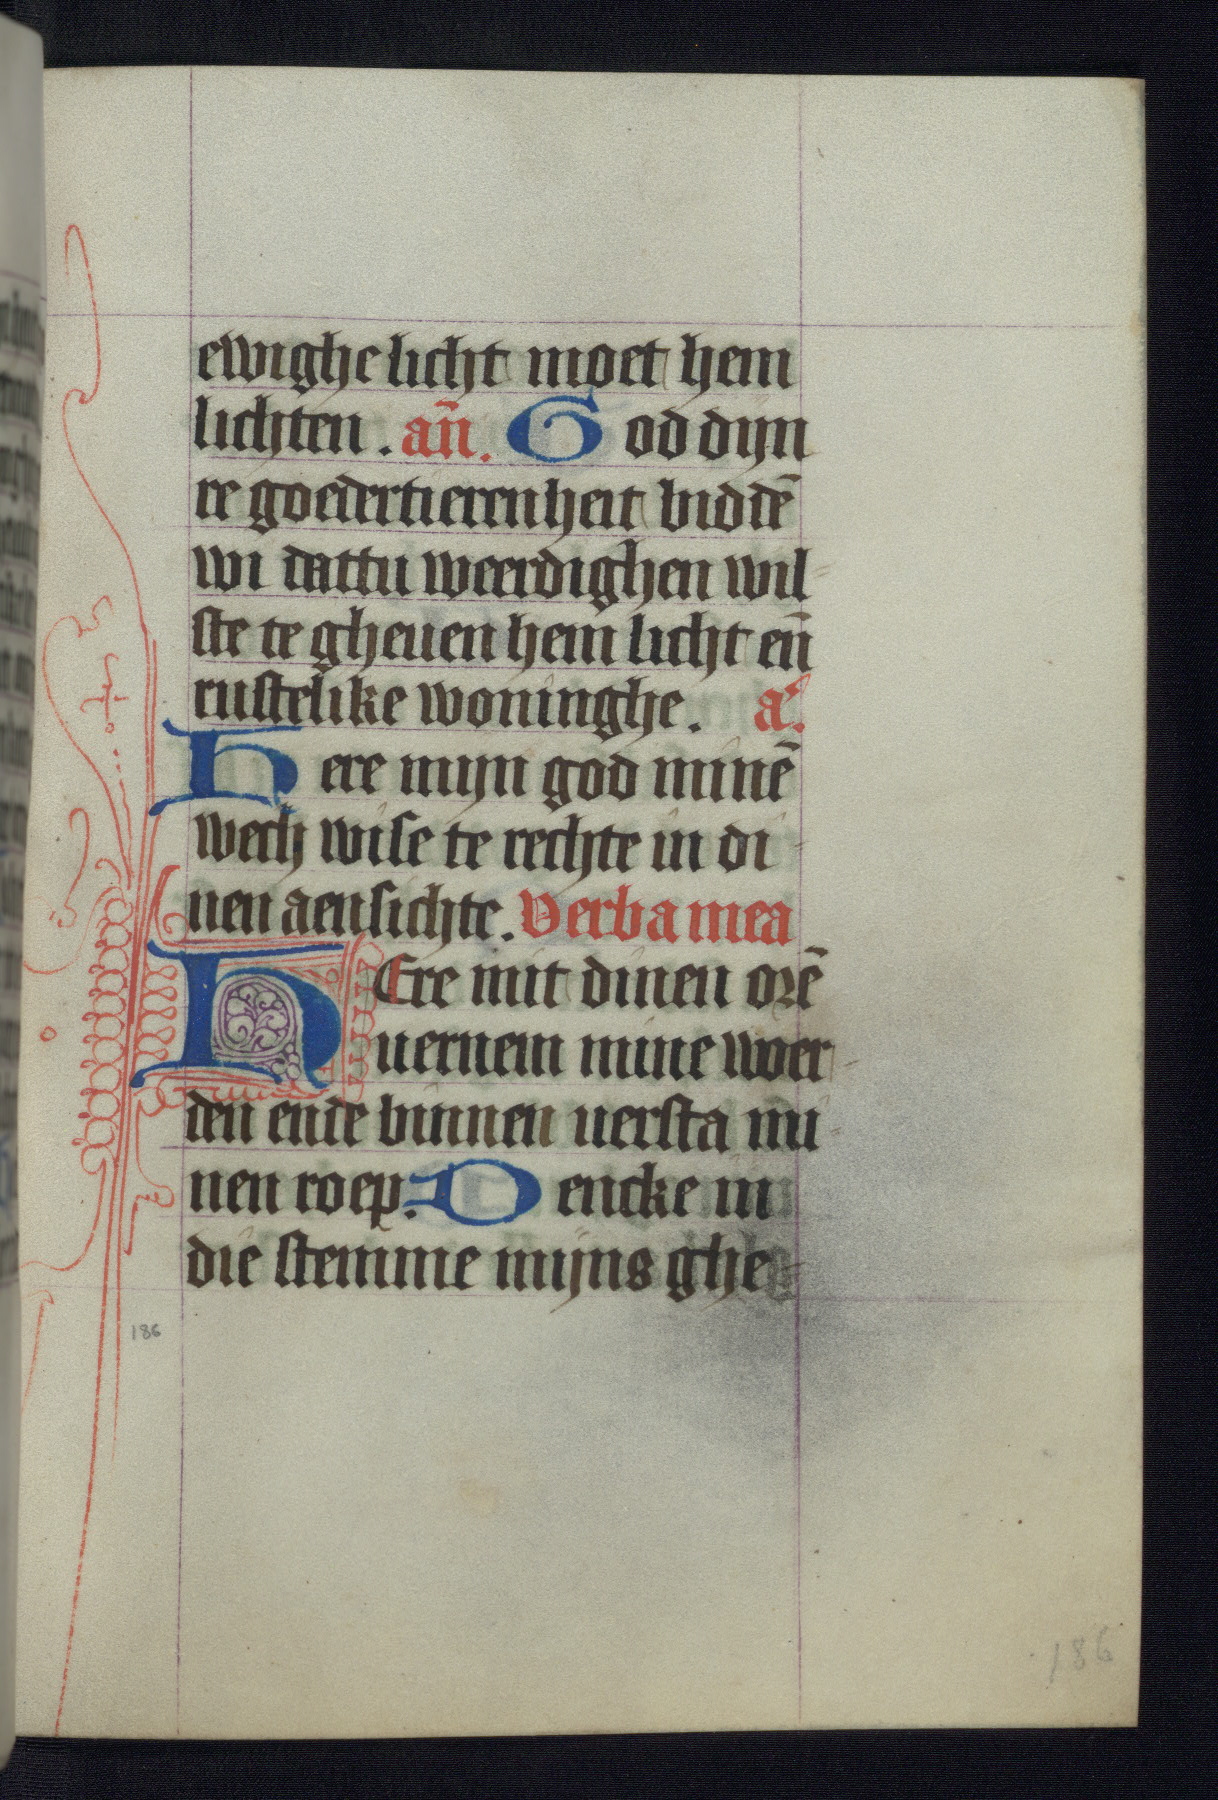 ewighe licht moet hem
lichten. an̄. God dijn
re goedertierenheit biddē
wi dattu weerdighen wil
ste te gheuen hem licht en̄
rustelike woninghe. a.
Here mijn god minē
wech wise te rechte in di
nen aensichte. Verba mea
HEre mit dinen orē
uernem mine woer
den ende binnen uersta mi
nen roep. Dencke in
die stemme mijns ghe
186
186